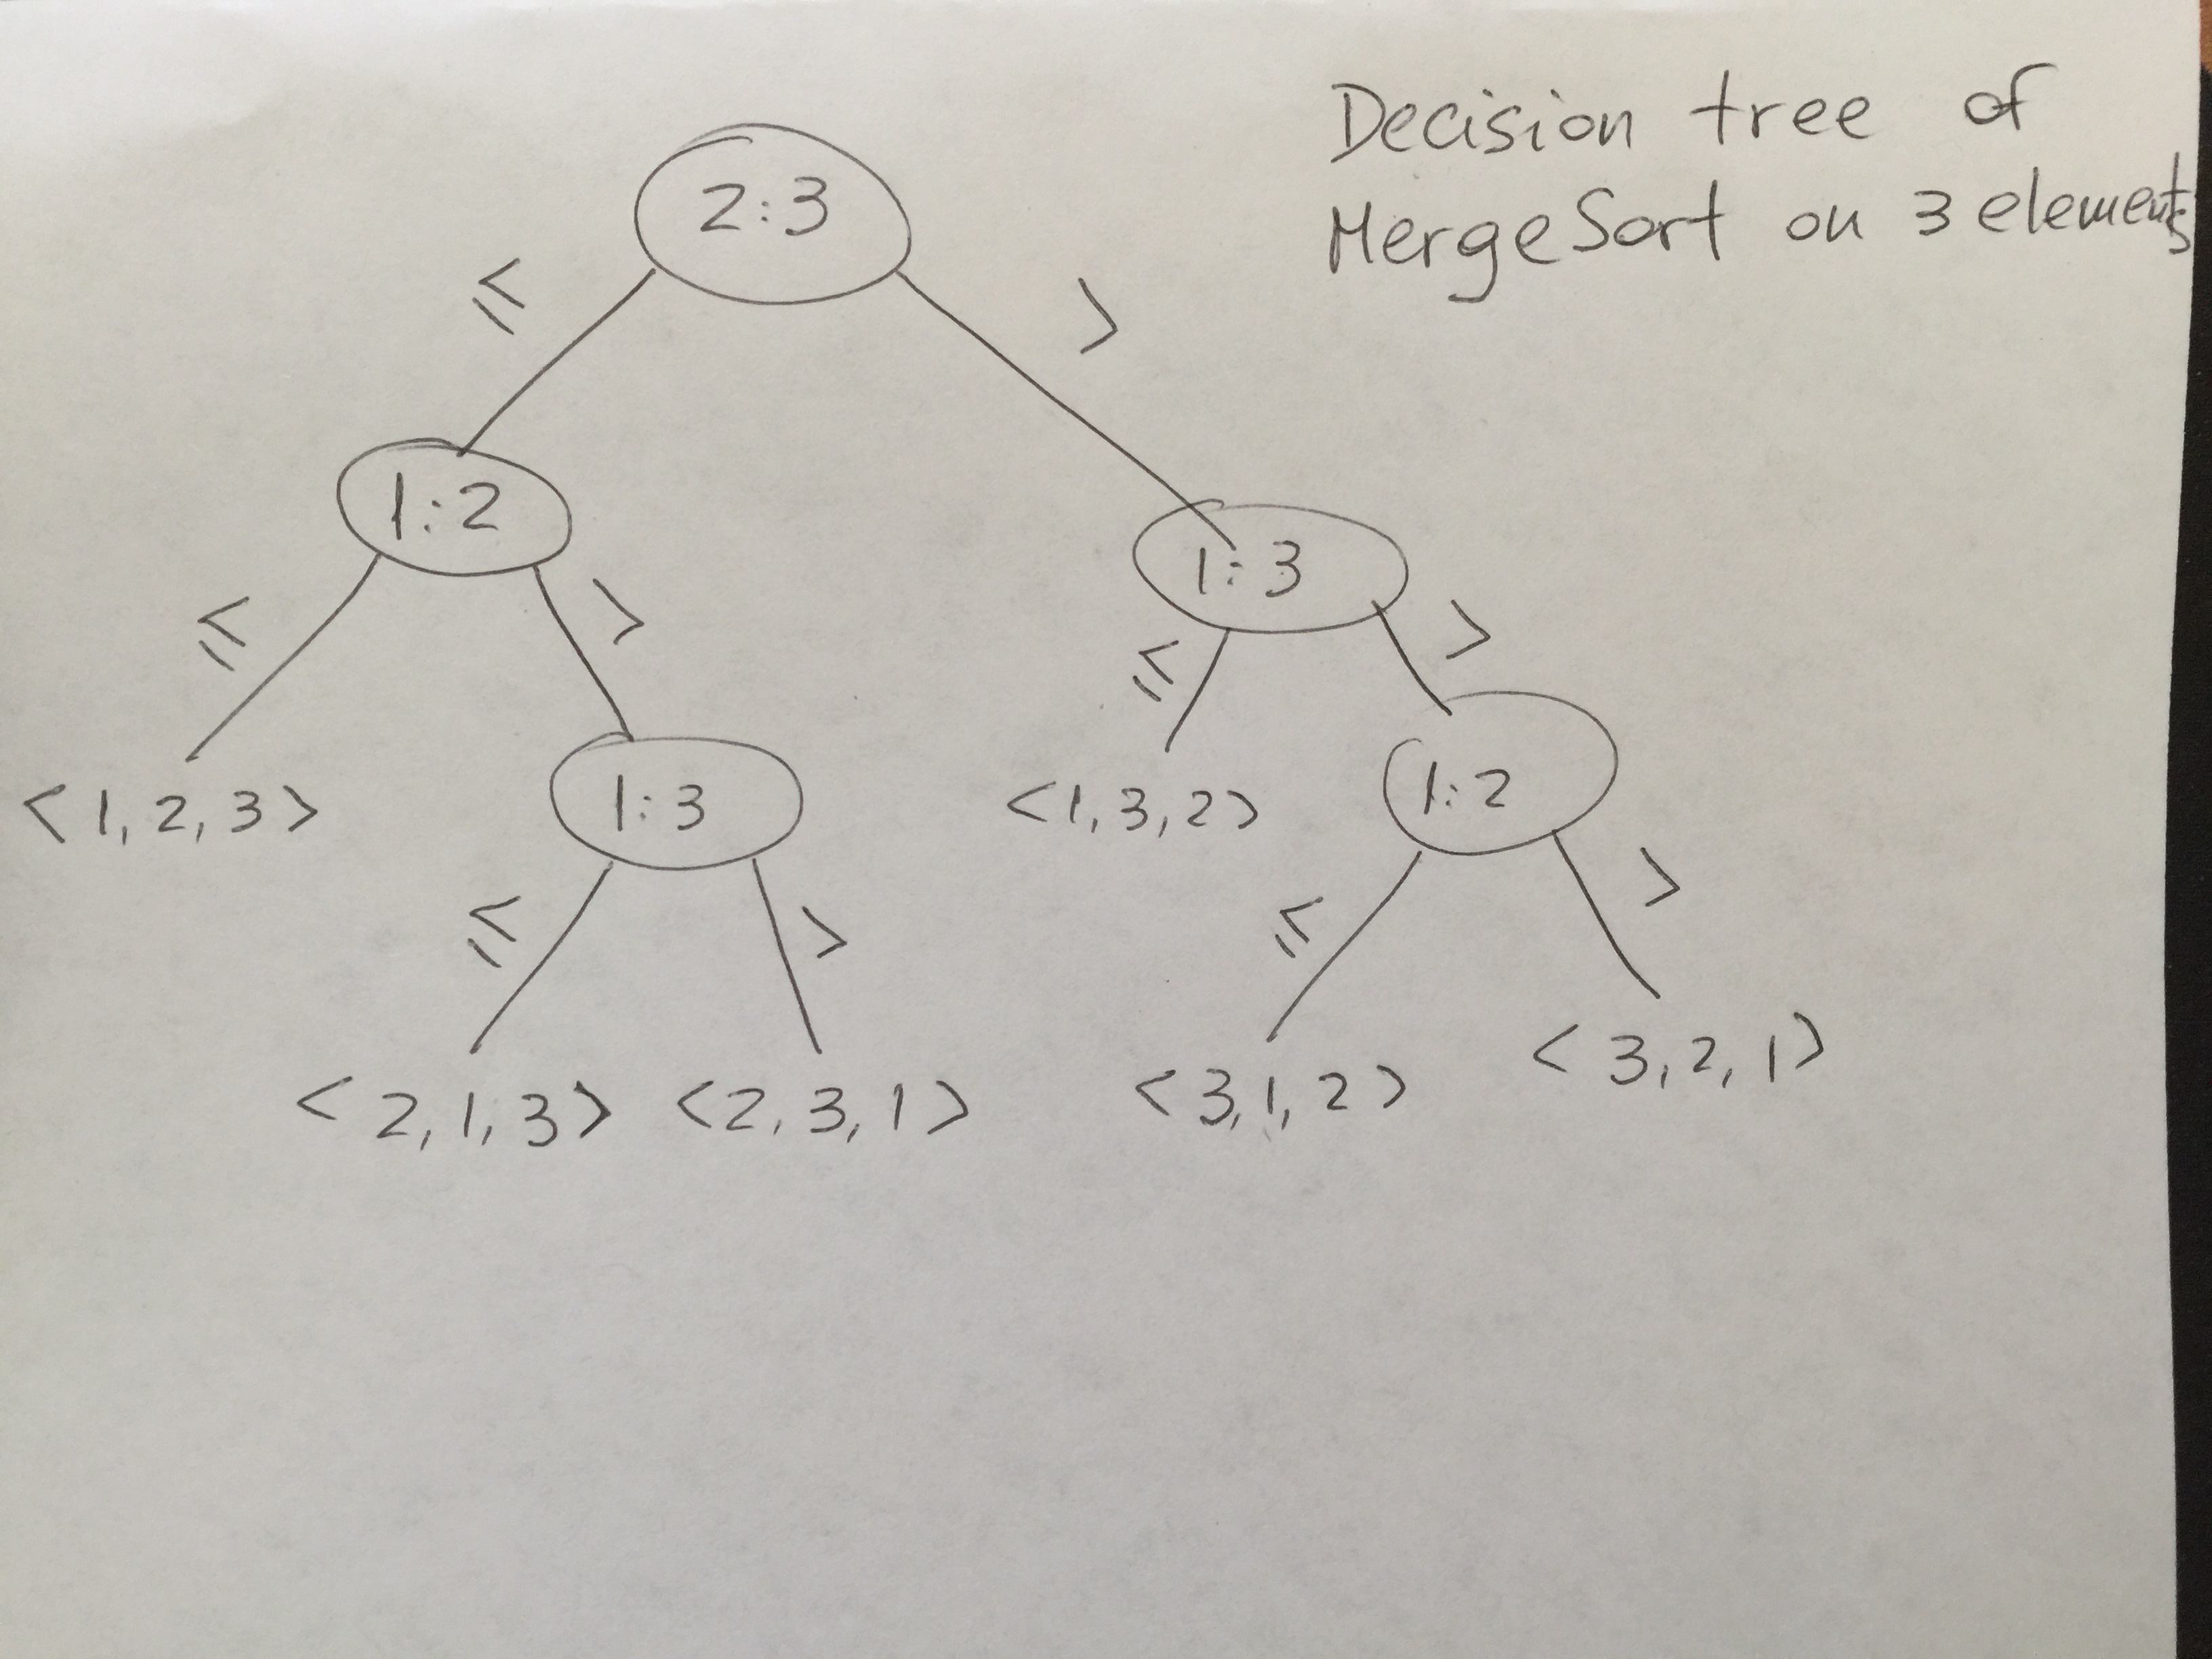 Decision tree of
MergeSort on 3 elements
2:3
≤ >
1:2
1:3
≤ >
≤ >
<1,2,3>
1:3
<1,3,2>
1:2
≤ >
≤ >
<2,1,3> <2,3,1>
<3,1,2>
<3,2,1>